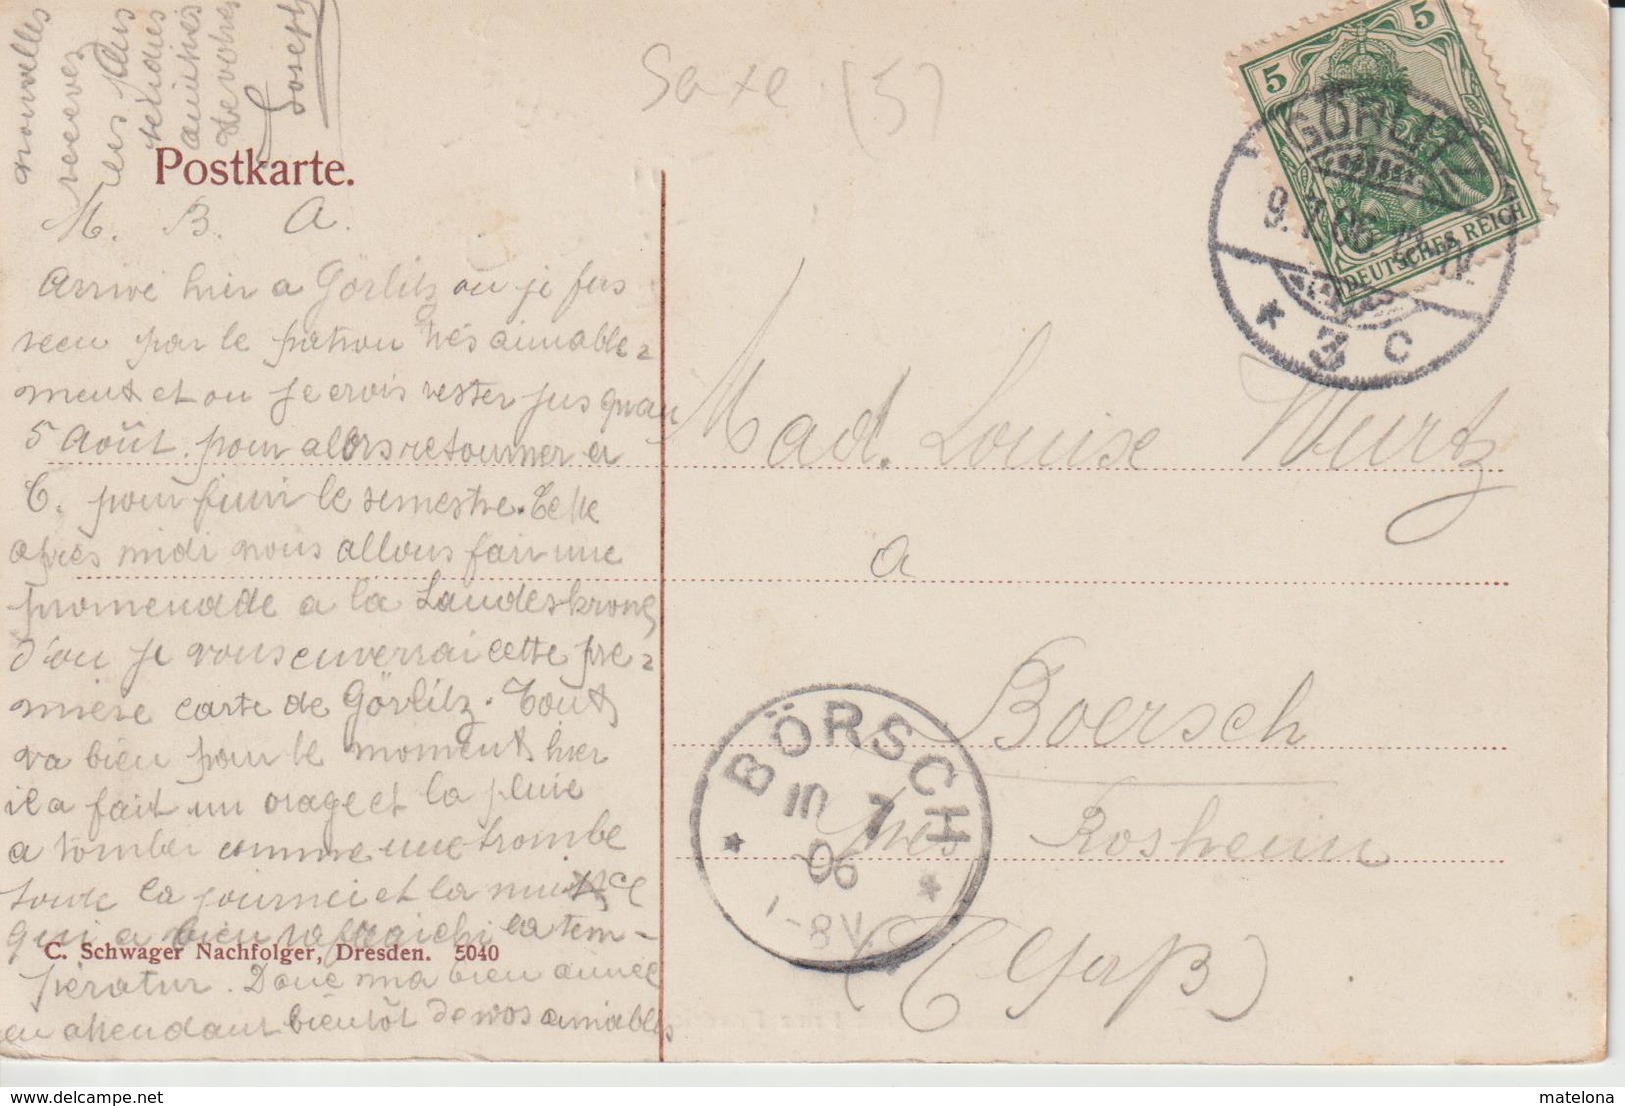 Postkarte.
Saxe (5)
5
5
DEUTSCHES REICH
GÖRLITZ
9.7.06
* 3 c
M. B. A.
Arrivé hier a Görlitz ou je fus
recu par le patron très aimable=
ment et ou je crois rester jusquau
5 Août. pour alors retourner a
C. pour finir le semestre. Cette
après midi nous allons fair une
promenade a la Landeskrone
d'ou je vous enverrai cette pre=
mière carte de Görlitz. Tout
va bien pour le moment, hier
il a fait un orage et la pluie
a tomber comme une trombe
toute la journei et la nuit ce
qui a bien rafraichi la tem-
pératur. Donc ma bien aimée
en attendant bientôt de vos aimables
nouvelles
recevez
les plus
tendres
amitiés
de votre
Joseph
Mad. Louise Wurtz
a
Boersch
près Rosheim
(Elsaß)
BÖRSCH
10 7
06
7-8V.
C. Schwager Nachfolger, Dresden. 5040
matelona